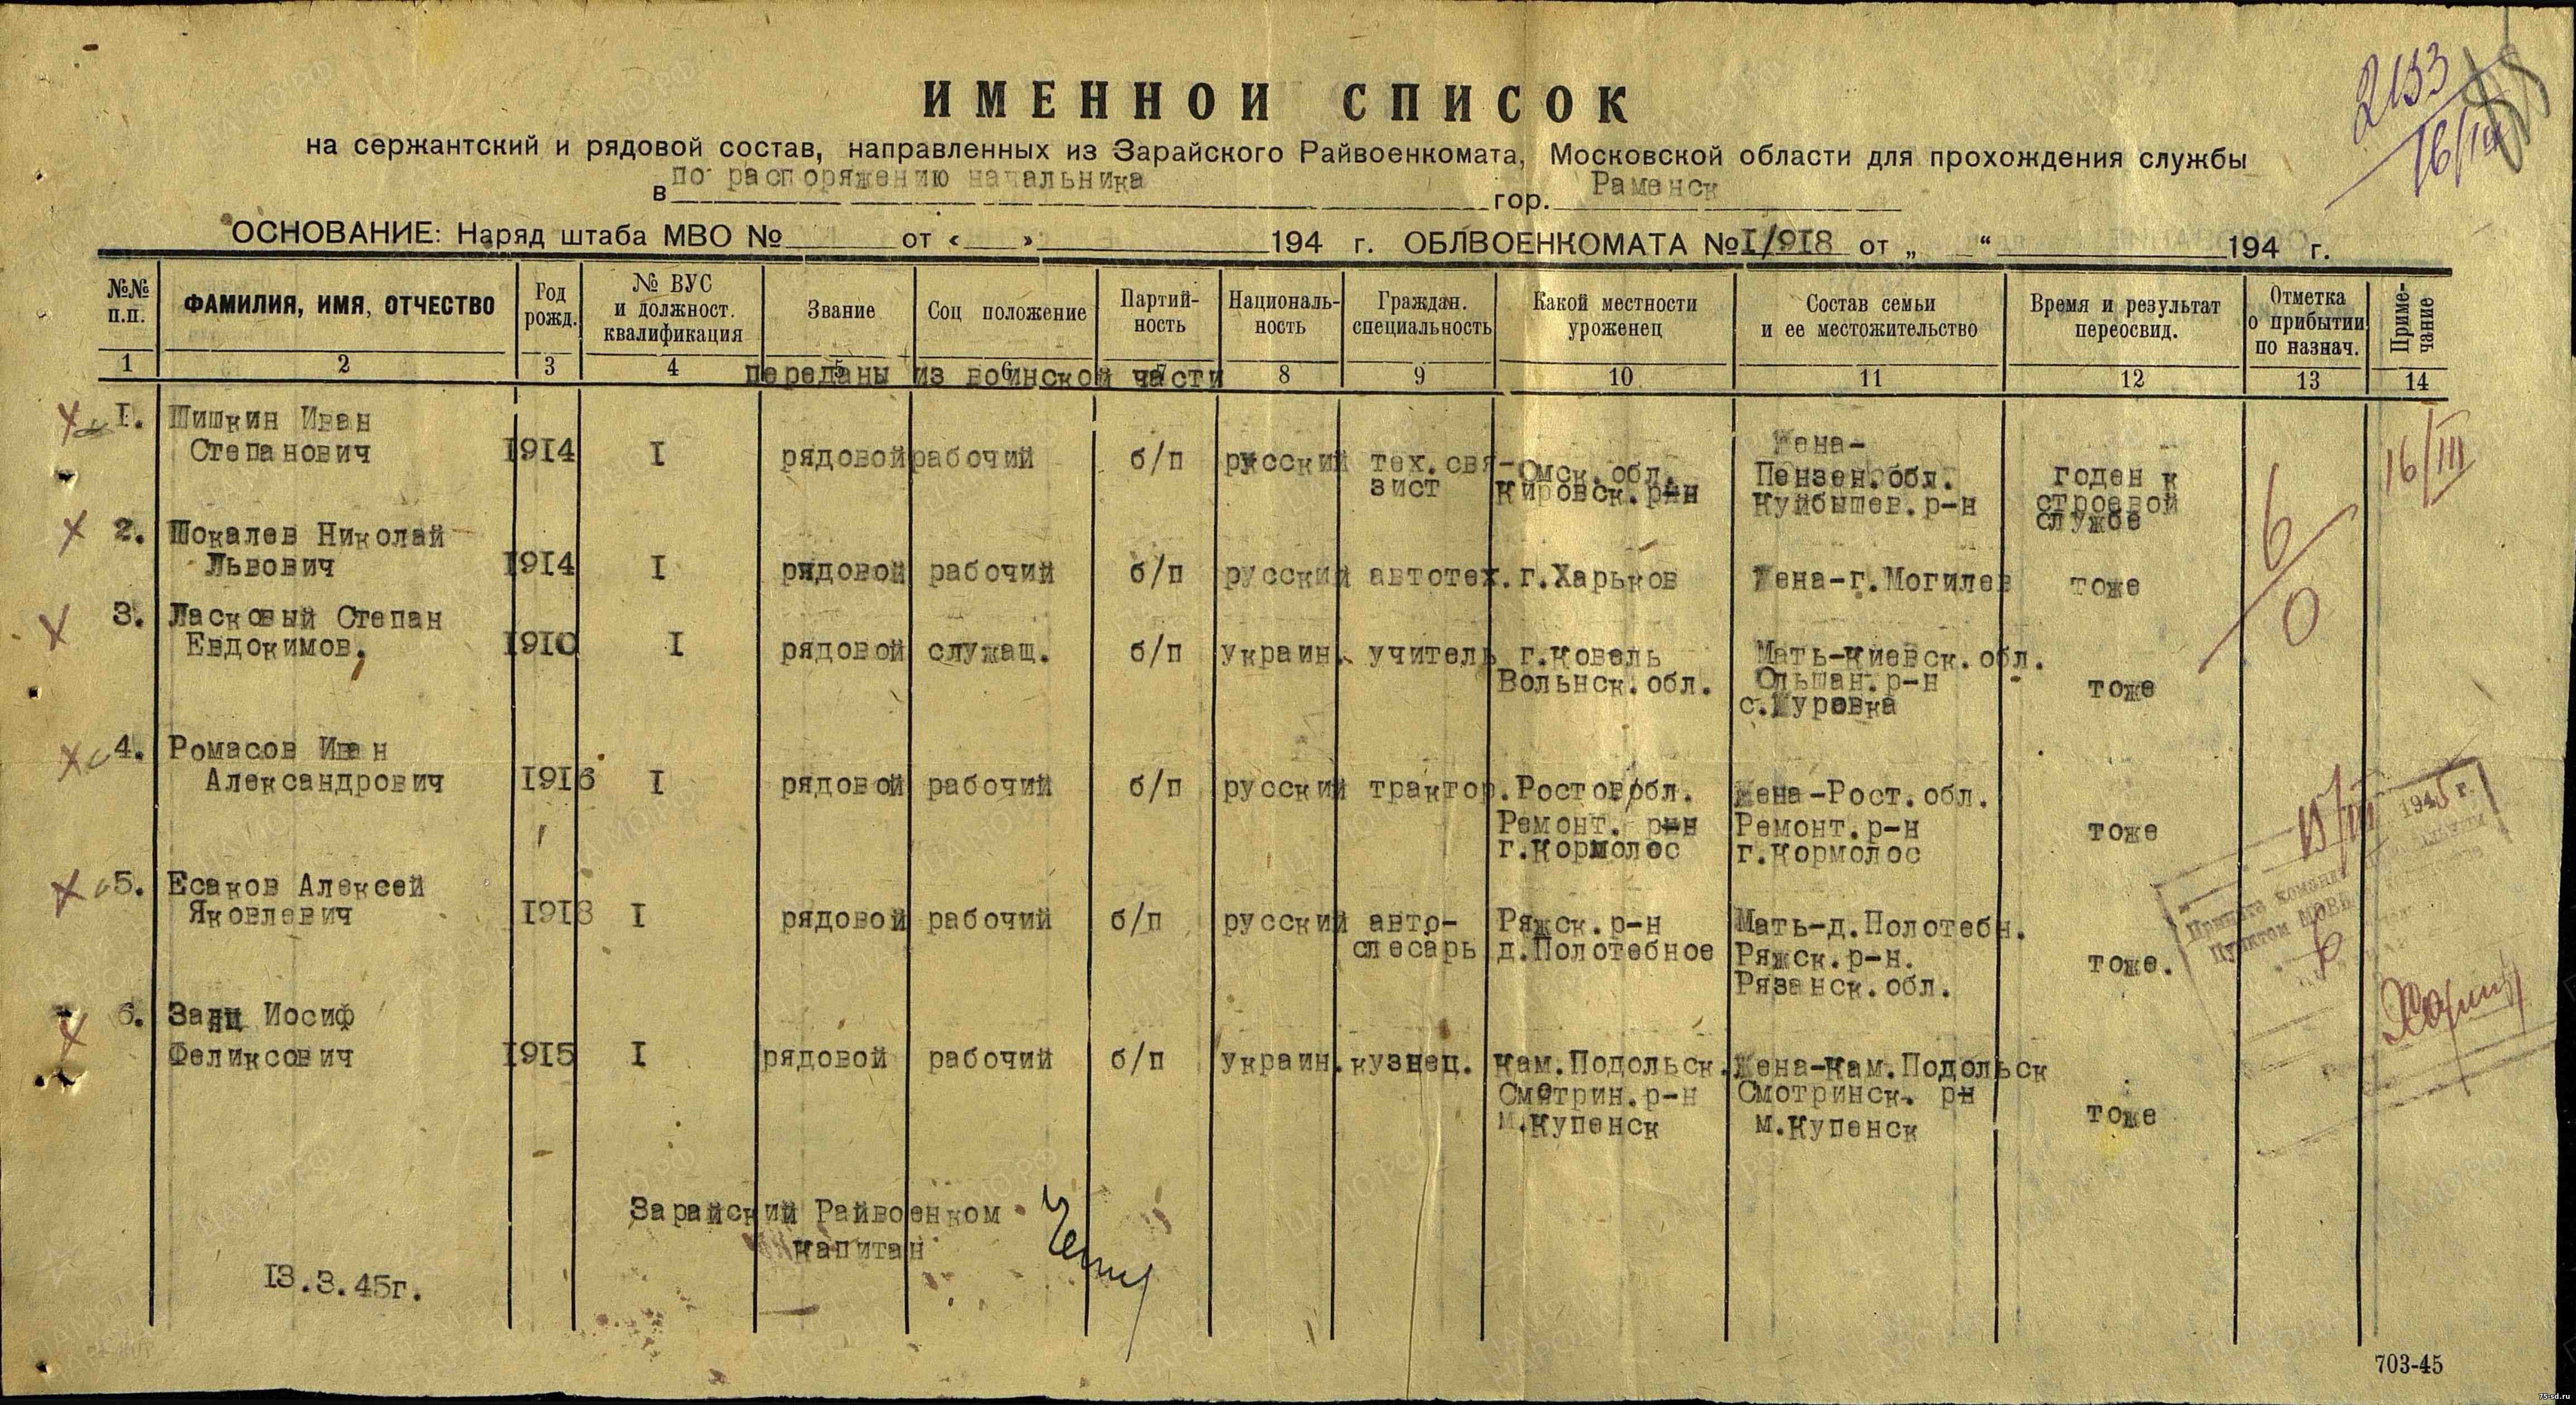 ИМЕННОЙ СПИСОК
на сержантский и рядовой состав, направленных из Зарайского Райвоенкомата, Московской области для прохождения службы
в по распоряжению начальника гор. Раменск
ОСНОВАНИЕ: Наряд штаба МВО № от « » 194 г. ОБЛВОЕНКОМАТА № I/918 от „ “ 194 г.
2133
16/III
№№ п.п.
ФАМИЛИЯ, ИМЯ, ОТЧЕСТВО
Год рожд.
№ ВУС и должност. квалификация
Звание
Соц положение
Партий-ность
Националь-ность
Граждан. специальность
Какой местности уроженец
Состав семьи и ее местожительство
Время и результат переосвид.
Отметка о прибытии по назнач.
Приме-чание
1 2 3 4 5 6 7 8 9 10 11 12 13 14
переданы из воинской части
I. Шишкин Иван
Степанович I9I4 I рядовой рабочий б/п русский тех.свя-зист Омск.обл. Кировск.р-н Жена- Пензен.обл. Куйбышев.р-н годен к строевой службе
16/III
2. Шокалев Николай
Львович I9I4 I рядовой рабочий б/п русский автотех. г.Харьков Жена-г.Могилев тоже
6/0
3. Ласковый Степан
Евдокимов. I9I0 I рядовой служащ. б/п украин. учитель г.Ковель Волынск.обл. Мать-Киевск.обл. Ольшан.р-н с.Журовка тоже
4. Ромасов Иван
Александрович I9I6 I рядовой рабочий б/п русский трактор. Ростов обл. Ремонт. р-н г.Кормолос Жена-Рост.обл. Ремонт.р-н г.Кормолос тоже
15/III 1945 г.
5. Есаков Алексей
Яковлевич I9I8 I рядовой рабочий б/п русский авто-слесарь Ряжск.р-н д.Полотебное Мать-д.Полотебн. Ряжск.р-н. Рязанск.обл. тоже.
Пунктом МОВВ
6. Заяц Иосиф
Феликсович I9I5 I рядовой рабочий б/п украин. кузнец. Кам.Подольск. Смотрин.р-н м.Купенск Жена-Кам.Подольск Смотринск. р-н м.Купенск тоже
Зарайский Райвоенком
капитан
I3.3.45г.
703-45
75-sd.ru